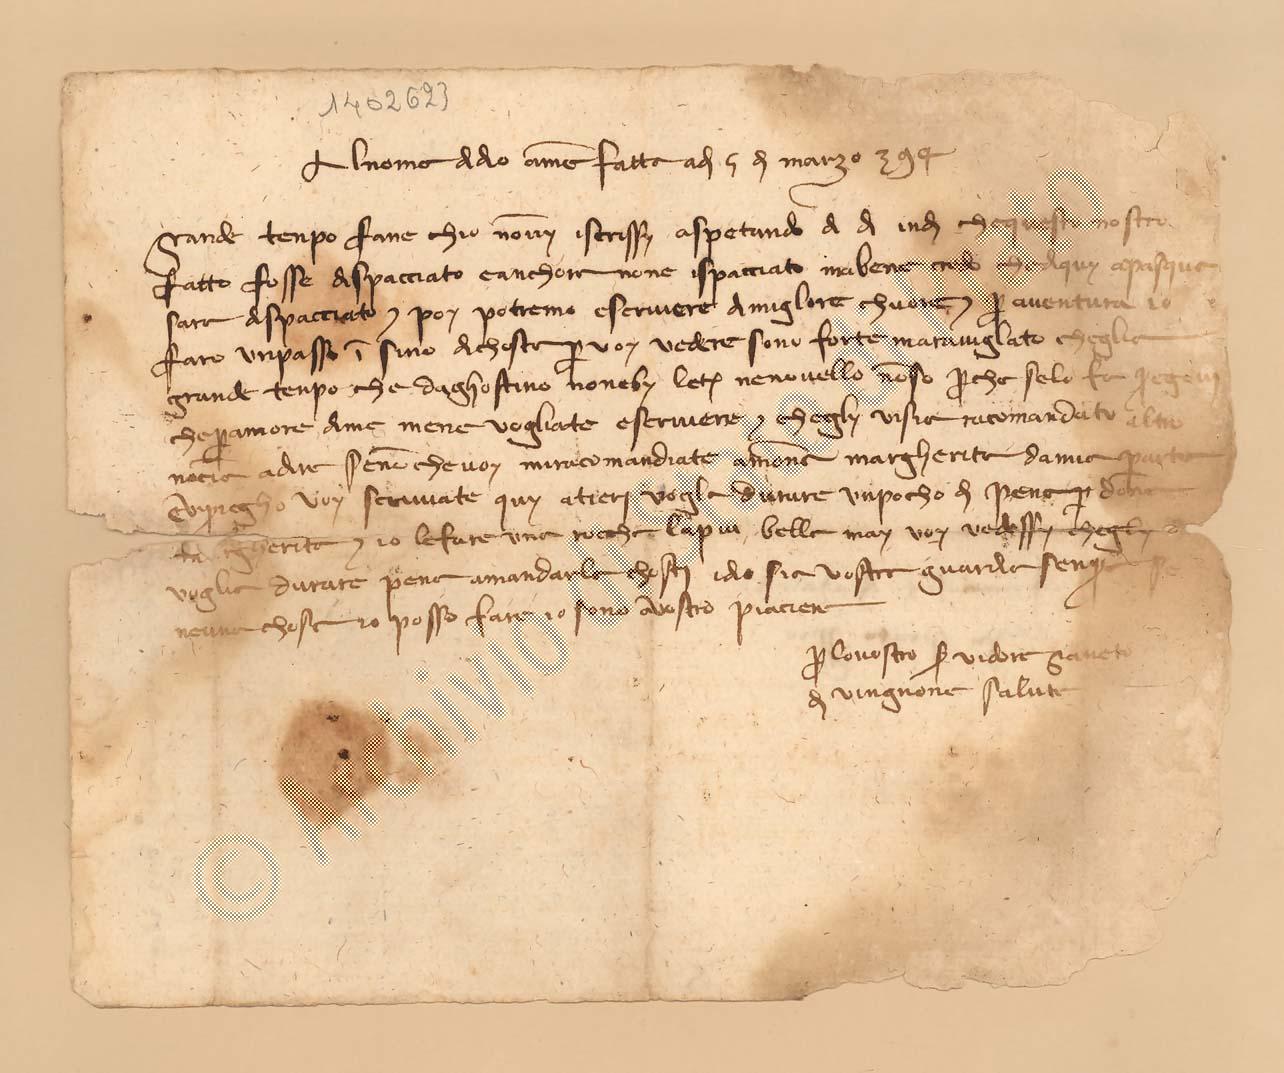 1402623
Al nome di dio ame fatta adi 5 di marzo 394
Grande tenpo fane chio nonvy iscrissy aspetando di di indi che questo nostro
fatto fosse dispacciato e anchora none ispacciato ma bene credo che di quy a pasqua
sara dispacciato e poy potremo escrivere di miglore chuore e p aventura io
faro un passo i sino di chosta p voy vedere sono forte maraviglato che glia
grande tenpo che daghostino non eby letr ne novella noso p che selo fa pregovy
che p amore di me mene vogliate escrivere e chegly visia racomandato altro
nocie a dire senon che voy mi racomandiate a mona margherita da mia parte
E vi pregho voy scriviate quy a tieri vogla durare un pocho di pena p dona
margherita e io le faro una roccha la piu bella may voy vedessy chegly
voglia durare pena a mandarla chosti idio sia vostra guardia senp se
neuna chosa io posso fare io sono a vostro piaciere
p lo vostro servidore
di vingnone salute
© Archivio di Stato di Prato